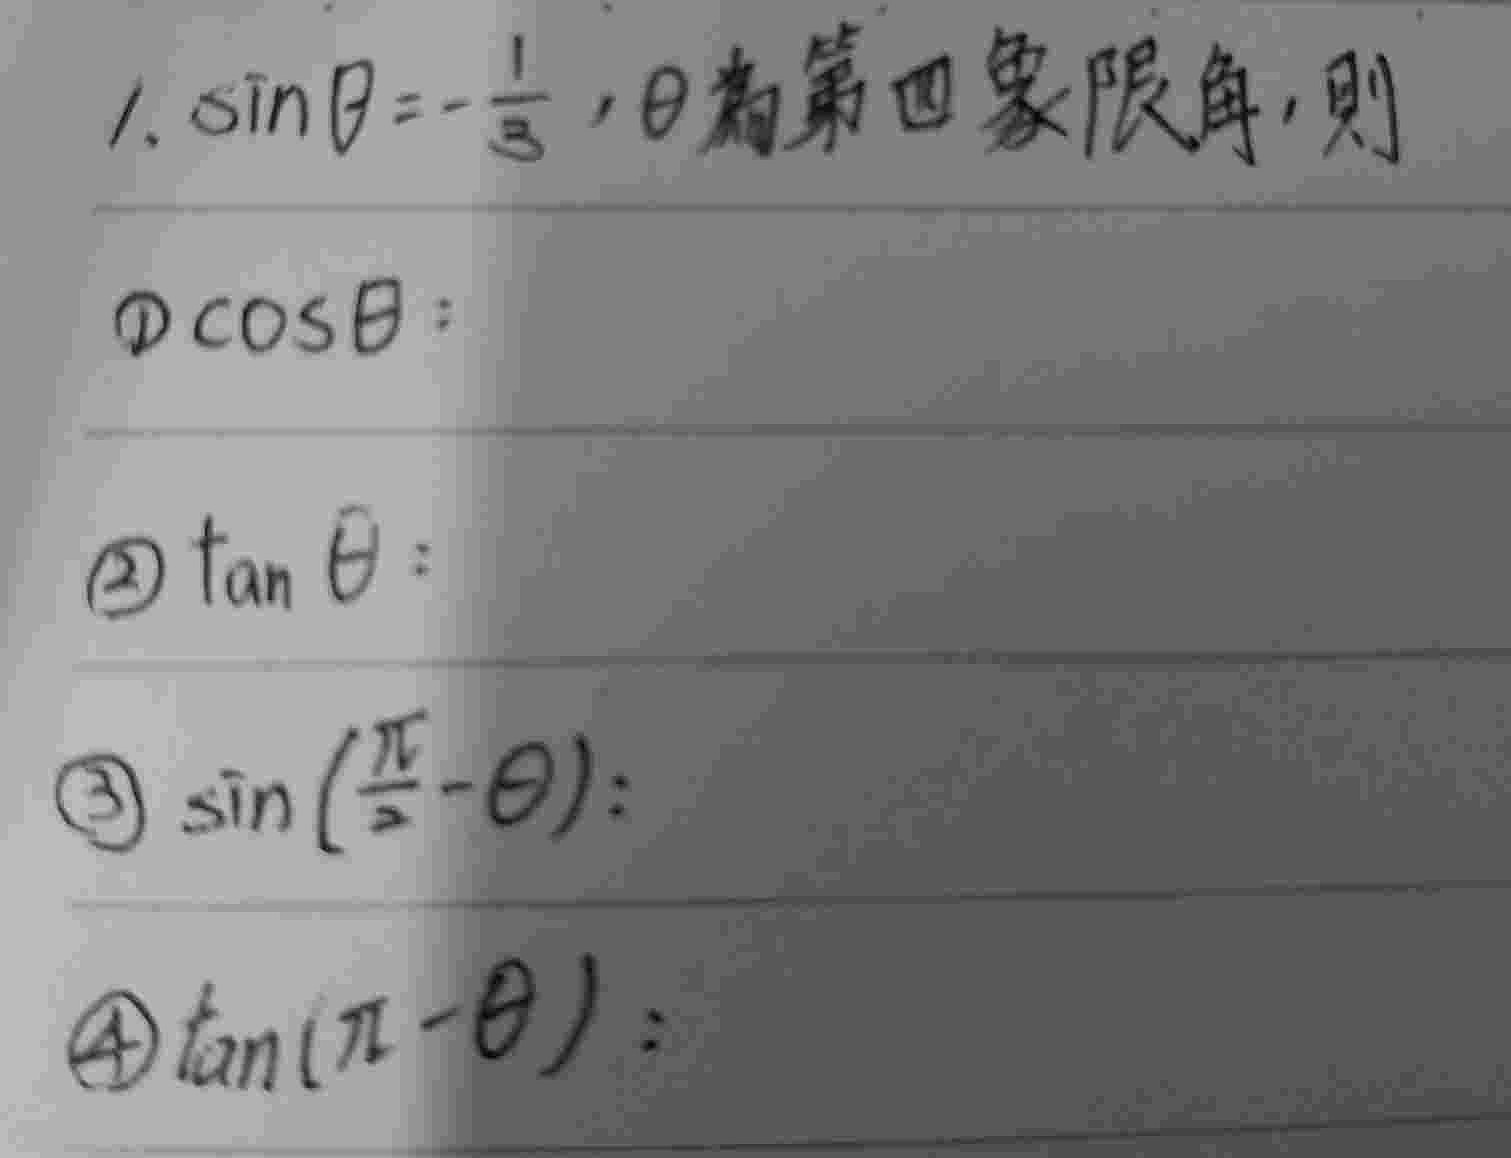 1. sinθ=-1/3，θ為第四象限角，則
①cosθ：
②tan θ：
③ sin(π/2-θ)：
④tan(π-θ)：